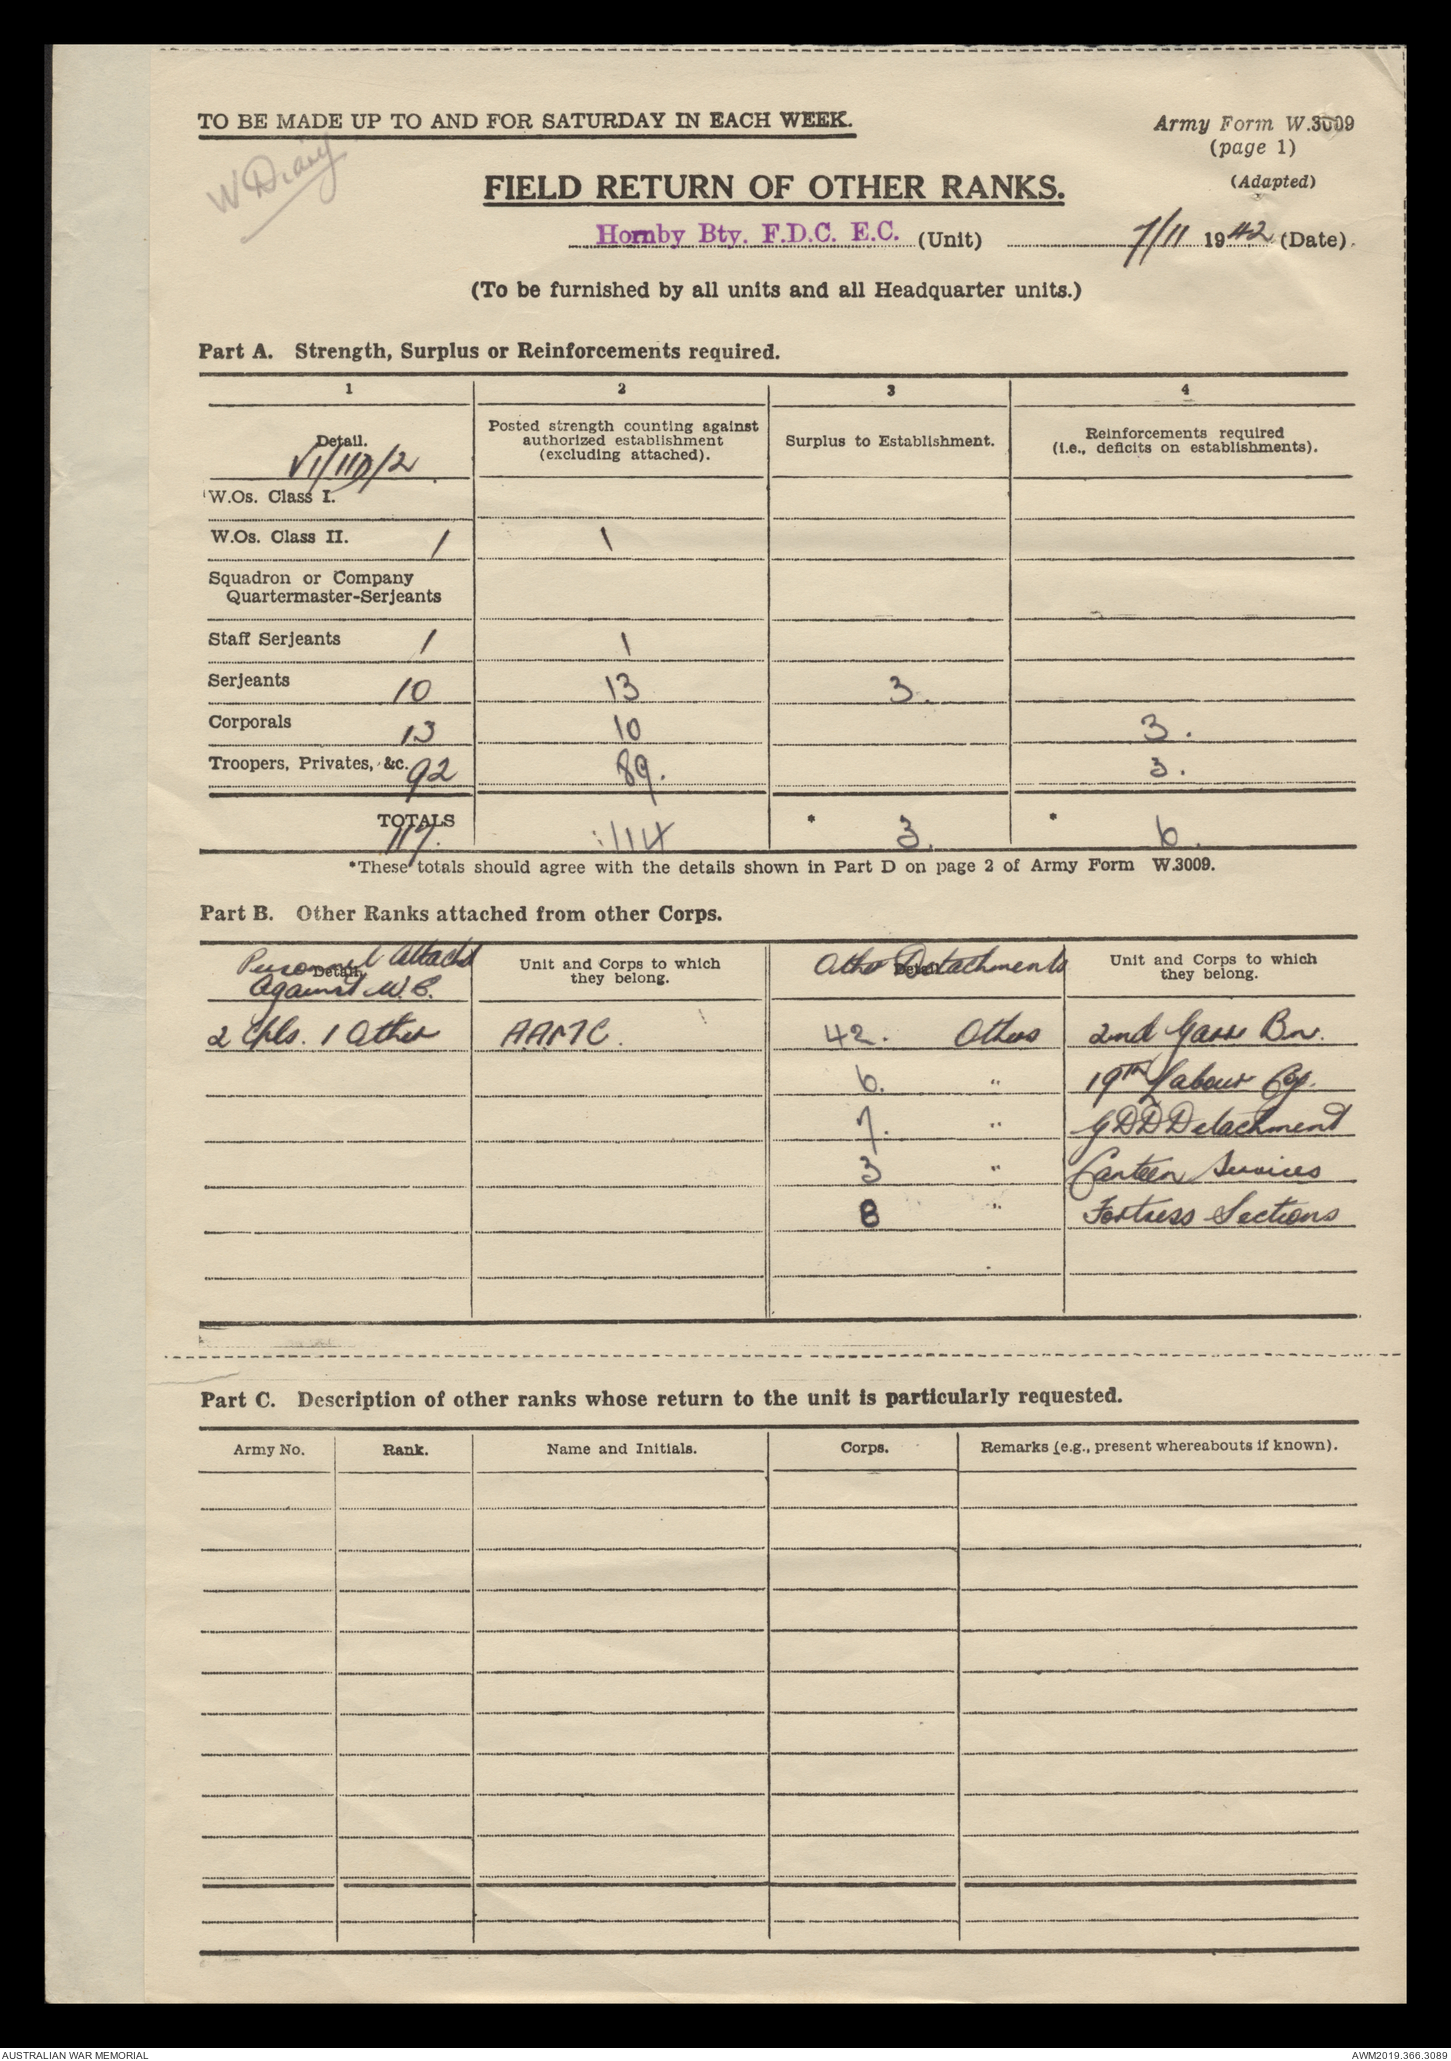 TO BE MADE UP TO AND FOR SATURDAY IN EACH WEEK.
Army Form W.3009
(page 1)
(Adapted)
W Diary
FIELD RETURN OF OTHER RANKS.
Hornby Bty. F.D.C. E.C. (Unit) 7/11 1942 (Date).
(To be furnished by all units and all Headquarter units.)
Part A. Strength, Surplus or Reinforcements required.
1 2 3 4
Detail. Posted strength counting against authorized establishment (excluding attached). Surplus to Establishment. Reinforcements required (i.e., deficits on establishments).
W.Os. Class I.
W.Os. Class II. 1 1
Squadron or Company
Quartermaster-Serjeants
Staff Serjeants 1 1
Serjeants 10 13 3.
Corporals 13 10 3.
Troopers, Privates, &c. 92 89. 3.
TOTALS 117. 114 * 3. * 6.
*These totals should agree with the details shown in Part D on page 2 of Army Form W.3009.
Part B. Other Ranks attached from other Corps.
Personnel Attachd Against W.E. Detail. Unit and Corps to which they belong. Other Detachments Detail. Unit and Corps to which they belong.
2 Cpls. 1 Other AAMC. 42. Others 2nd Garr Bn.
6. " 19th Labour Coy.
7. " GDD Detachment
3 " Canteen Services
8 " Fortress Sections
Part C. Description of other ranks whose return to the unit is particularly requested.
Army No. Rank. Name and Initials. Corps. Remarks (e.g., present whereabouts if known).
AUSTRALIAN WAR MEMORIAL AWM2019.366.3089